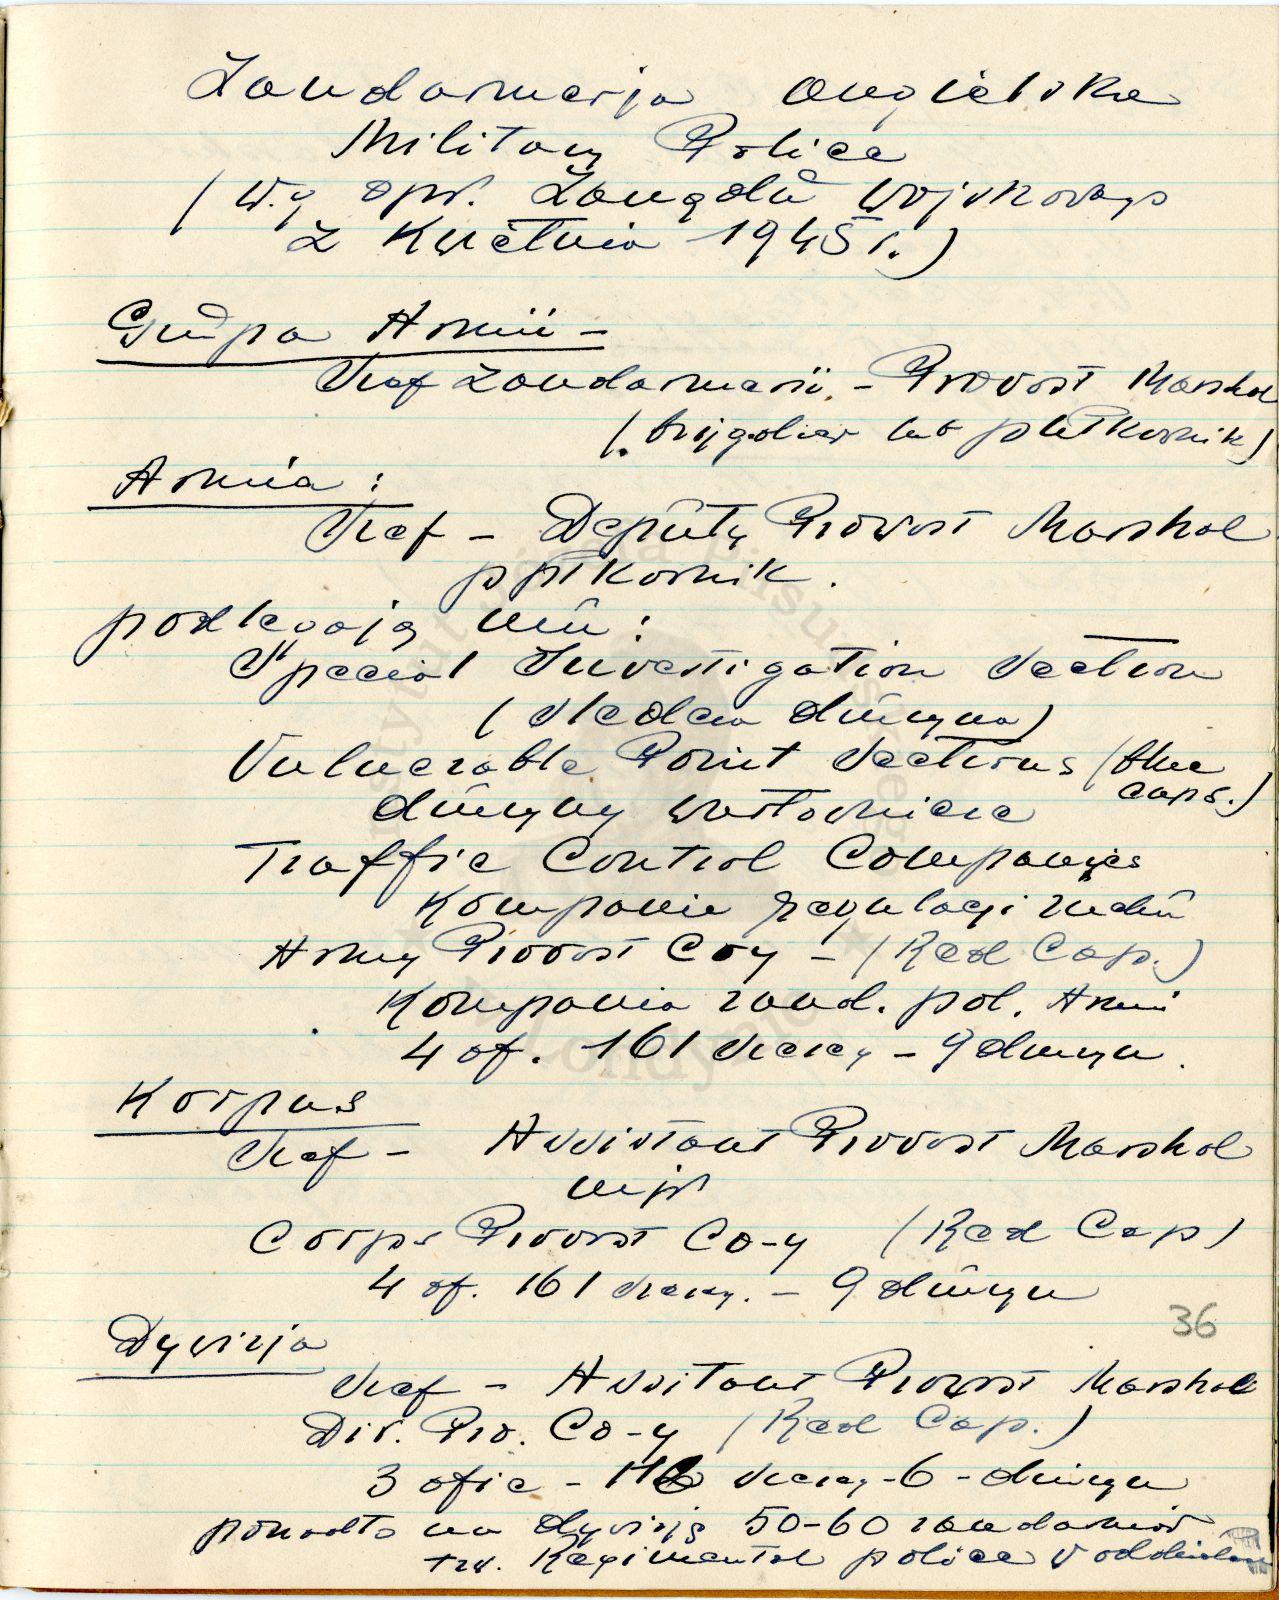 Żandarmerja angielska
Military Police
(w.g opr. Żandarm Wojskowego
z Kwietnia 1945 r.)
Grupa Armii –
Szef żandarmerii – Provost Marshal
(brygadier lub płk pułkownik)
Armia :
Szef – Deputy Provost Marshal
ppłkownik.
podlegają mu :
Special Investigation Section
(śledcza drużyna)
Vulnerable Point Sections (blue
caps.)
drużyny wartownicze
Traffic Control Companies
Kompanie regulacji ruchu
Army Provost Coy – (Red Cap.)
Kompania żand. pol. Armii
4 of. 161 szereg – 9 drużyn.
Korpus
Szef – Assistant Provost Marshal
mjr
Corps Provost Co-y (Red Cap)
4 of. 161 szereg. – 9 drużyn
36
Dywizja
Szef – Assitant Provost Marshal
Div. Pro. Co-y (Red Cap.)
3 ofic – szereg – 6 – drużyn
ponadto na dywizję 50-60 żandarmów
tzw. Regimental police w oddziałach